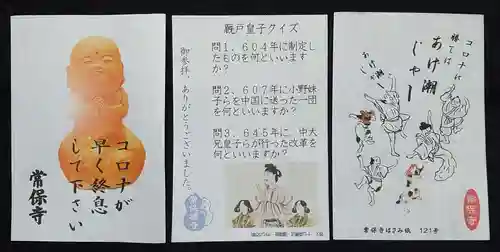 コロナが
早く終息
して下さい
常保寺
厩戸皇子クイズ
御参拝、ありがとうございました。
問1、604年に制定し
たものを何といいます
か？
問2、607年に小野妹
子らを中国に送った一団
を何といいますか？
問3、645年に、中大
兄皇子らが行った改革を
何といいますか？
コロナは
あけ潮
じゃー
あけ潮
じゃー
常保寺はさみ紙 121号
常保寺